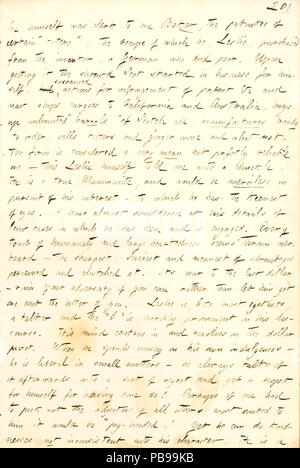 201
he himself was clerk to one Baker, the patentee of
certain "bitters", the recipe of which he, Leslie, purchased
from the inventor, a German who died poor. Upon
getting it the shrewd Scot started in business for him-
self. sustained actions for infringement of patent &c and
now ships cargoes to California and Australia, buys
up unlimited barrels of Scotch ale, manufactures brandy
to order, sells bitters and ginger wine and what not.
The firm is considered a very mean but perfectly reliable
one — this Leslie himself told me with a chuckle.
He is a true Mammonite, and would be merciless in
pursuit of his interest — to which he has the keenest
of eyes. I was almost smothered at his details of
law cases in which he has been and is engaged. Every
spark of humanity and large-heartedness seems thrown over-
board — the sharpest, surest and meanest of advantages
perceived and clutched at. It's war to the last dollar
— ruin your adversary if you can rather than let him get
one cent the better of you. Leslie is the most egotistic
a talker and the "I" is notably prominent in his dis-
course. His mind centres in and revolves on the dollar
pivot. When he spends money on his own indulgences —
he is liberal in small matters — he always talks of
it afterwards with a sort of regret and yet a respect
for himself for having done so! Perhaps if one had
to pick out the adjective of all others most suited to
him it would be "pig-headed." Yet he can do kind-
nesses not inconsistent with his character. He is a
alamy
Image ID: PB99KB
www.alamy.com